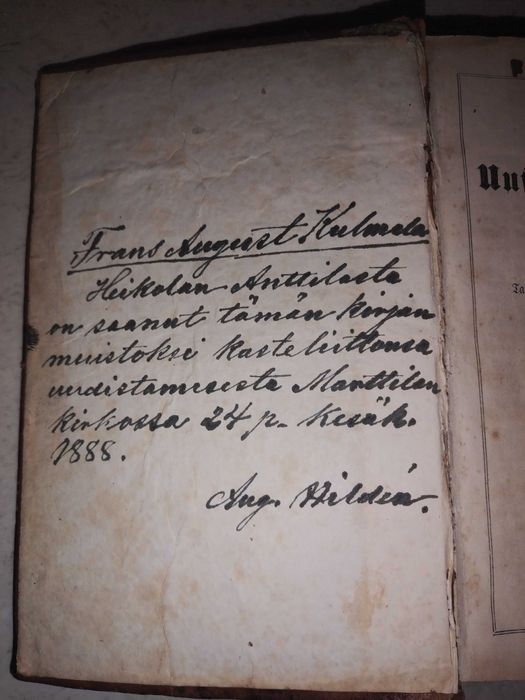 Frans August Kulmala
Heikolan Anttilasta
on saanut tämän kirjan
muistoksi kasteliittonsa
uudistamisesta Marttilan
kirkossa 24 p. Kesäk.
1888.
Aug. Hildén.
Uut
Ta